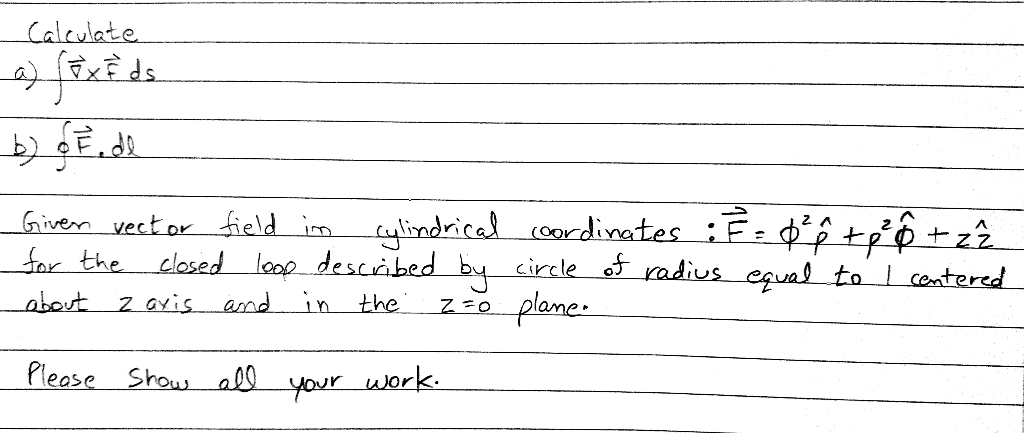 Calculate
a) ∫ ∇⃗ x F⃗ ds
b) ∮ F⃗ . dl
Given vector field in cylindrical coordinates : F⃗ = ϕ² ρ̂ + ρ² ϕ̂ + z ẑ
for the closed loop described by circle of radius equal to 1 centered
about z axis and in the z=0 plane.
Please Show all your work.